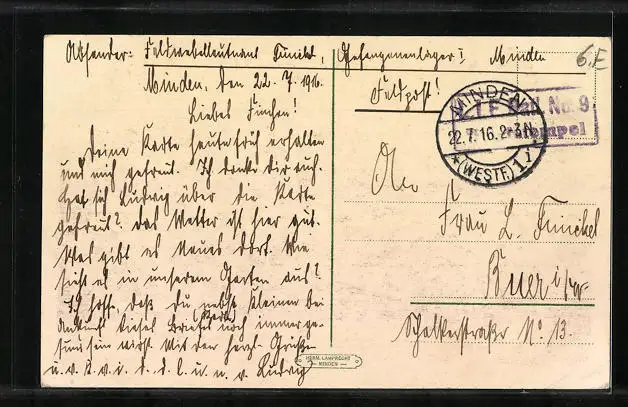 Absender: Feldwebelleutnant Finckel, Gefangenenlager I Minden
6.E
Minden, den 22. 7. 1916.
Feldpost!
Liebes Finchen!
Deine Karte heute früh erhalten
und mich gefreut. Ich danke dir auch.
Hat sich Ludwig über die Karte
gefreut? Das Wetter ist hier gut.
Was gibt es Neues dort. Wie
sieht es in unserem Garten aus?
Ich hoffe, daß du nebst Kleinen bei
Ankunft dieses Briefes (Karte) noch immer ge-
sund sein wirst. Mit den herzl. Grüßen
u. v. K. v. i. d. d. l. u. n. v. Ludwig
MINDEN
22.7.16. 2-3 N
* (WESTF.) 1 i
No. 9
An
Frau L. Finckel
Buer i/W
Schalkerstraße No. 13.
HERM. LAMPRECHT
MINDEN